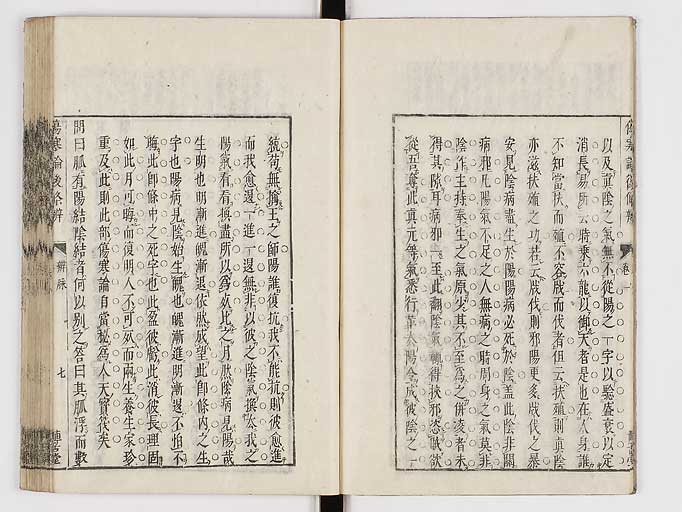 以及眞陰之氣無不從陽之一字以驗盛衰以定
消長易所云時乘六龍以御天者是也在人身誰
不知當扶而殖不容戕而伐者但云扶殖則眞陰
亦滋扶殖之功若云戕伐則邪陽更多戕伐之暴
安見陰病盡生於陽陽病必死於陰蓋此陰非關
病邪凡陽氣不足之人無病之時周身之氣莫非
陰作主持奉生之氣原少其不至爲之倂凌者未
得其隙耳病邪一至此翻陰氣輒得挾邪恣欲
從吾奪此眞元等氣悉行革太陽令成彼陰之一
統苟無擒王之師陽誰復抗我不能抗則彼愈進
而我愈退一進一退無非以彼之陰氣撲太我之
陽氣看看撲盡所以爲死此之月然陰病見陽哉
生明也明漸進魄漸退依然成望此卽條内之生
字也陽病見陰始生魄也魄漸進明漸退不怕不
晦此卽條中之死字也此盈彼虧此消彼長理固
如此月可晦而復明人不可死而兩生養生家珍
重及此則此部傷寒論自當祕爲人天寳筏矣
問曰脈有陽結陰結者何以別之答曰其脈浮而數
傷寒論後條辨
辨脉
七
卷一